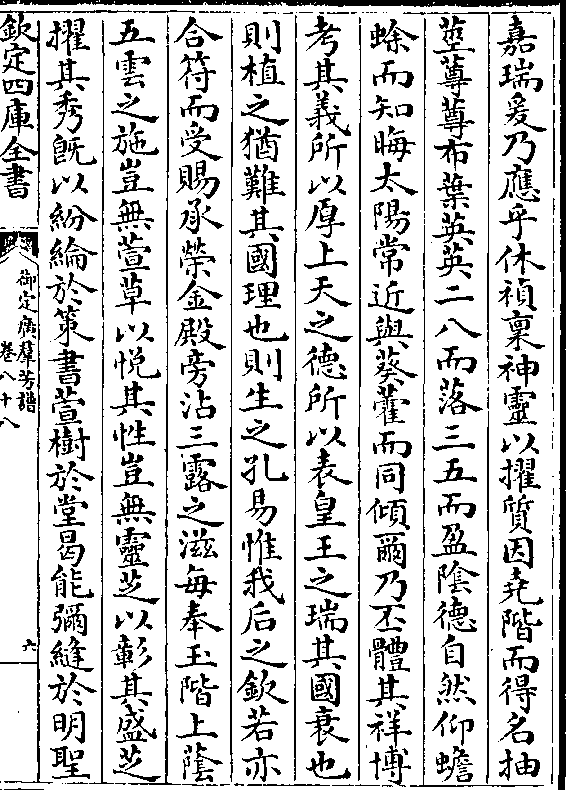 嘉瑞爰乃應乎休禎稟神靈以擢質因堯階而得名抽
莖蓴蓴布葉英英二八而落三五而盈陰德自然仰蟾
蜍而知晦太陽常近與葵藿而同傾爾乃丕體其祥博
考其義所以厚上天之德所以表皇王之瑞其國衰也
則植之猶難其國理也則生之孔易惟我后之欽若亦
合符而受賜承榮金殿旁沾三露之滋每奉玉階上蔭
五雲之施豈無萱草以悅其性豈無靈芝以彰其盛芝
擢其秀旣以紛綸於策書萱樹於堂曷能彌縫於明聖
欽定四庫全書
御定廣羣芳譜
卷八十八
六